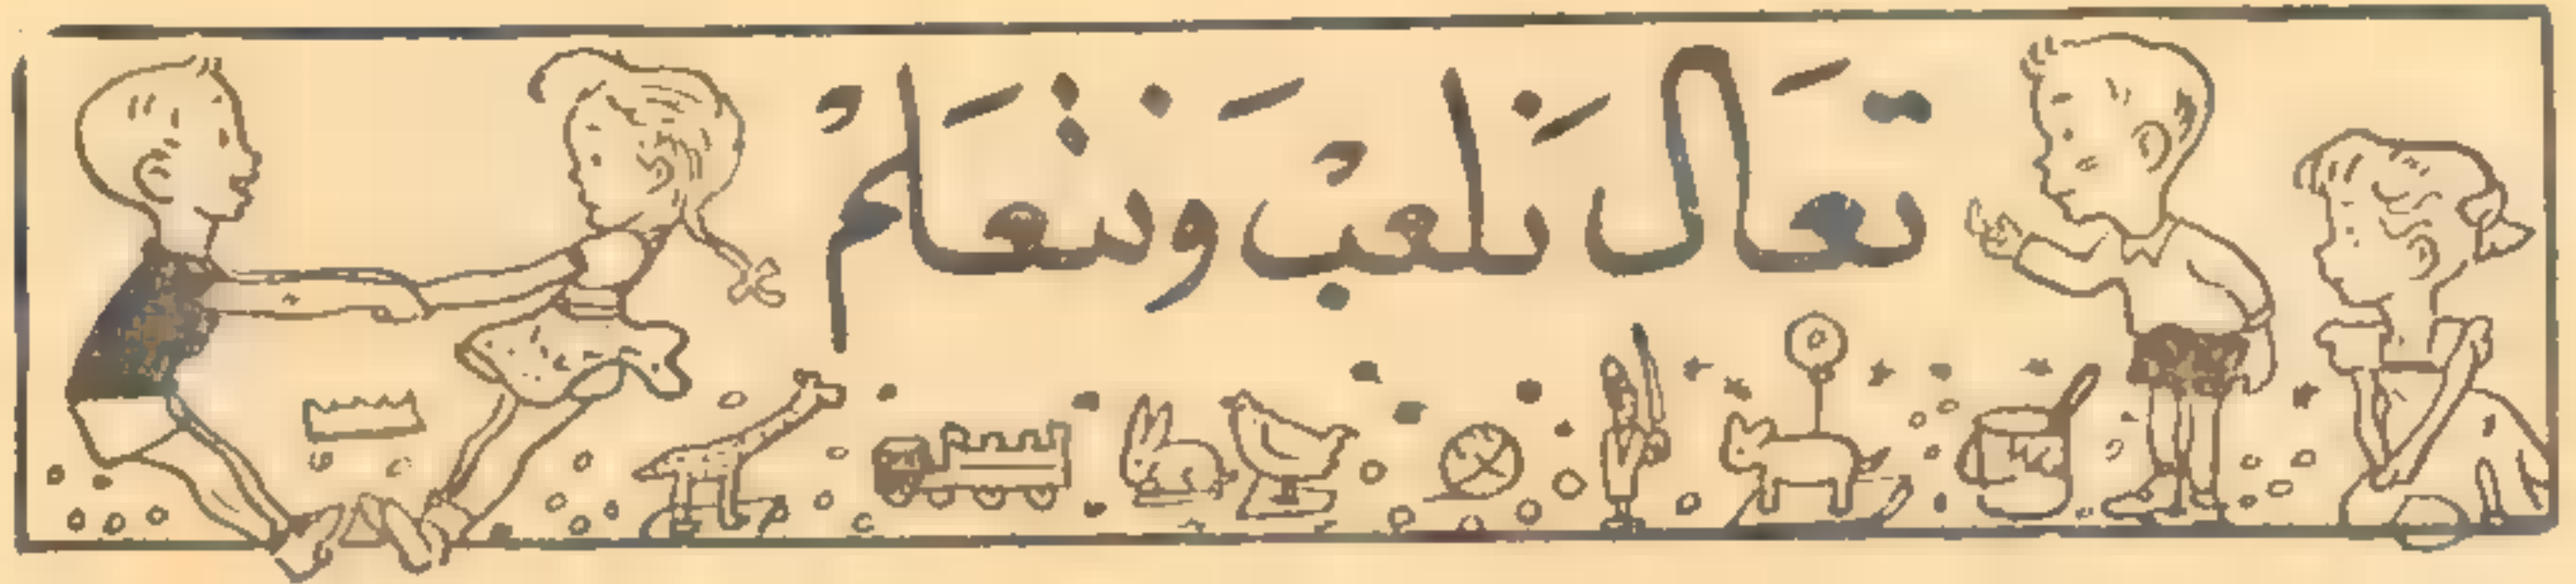 تَعَال نَلعَبْ وَنتعَلمْ